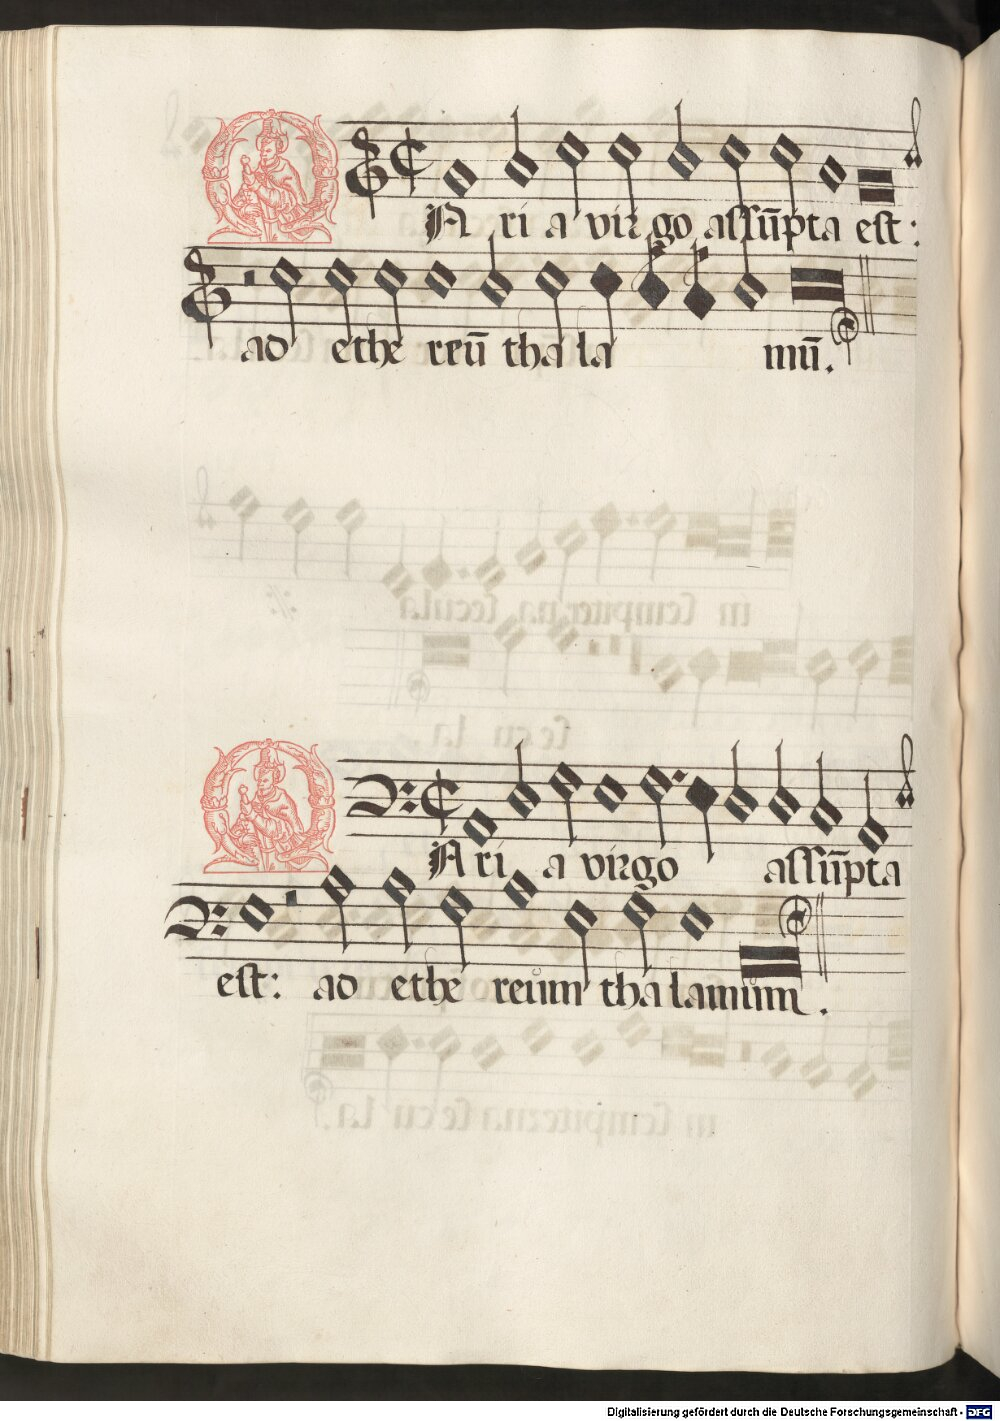 MAri a virgo assūpta est:
ad ethe reū tha la mū.
MAri a virgo assūpta
est: ad ethe reům tha lamům.
Digitalisierung gefördert durch die Deutsche Forschungsgemeinschaft - DFG